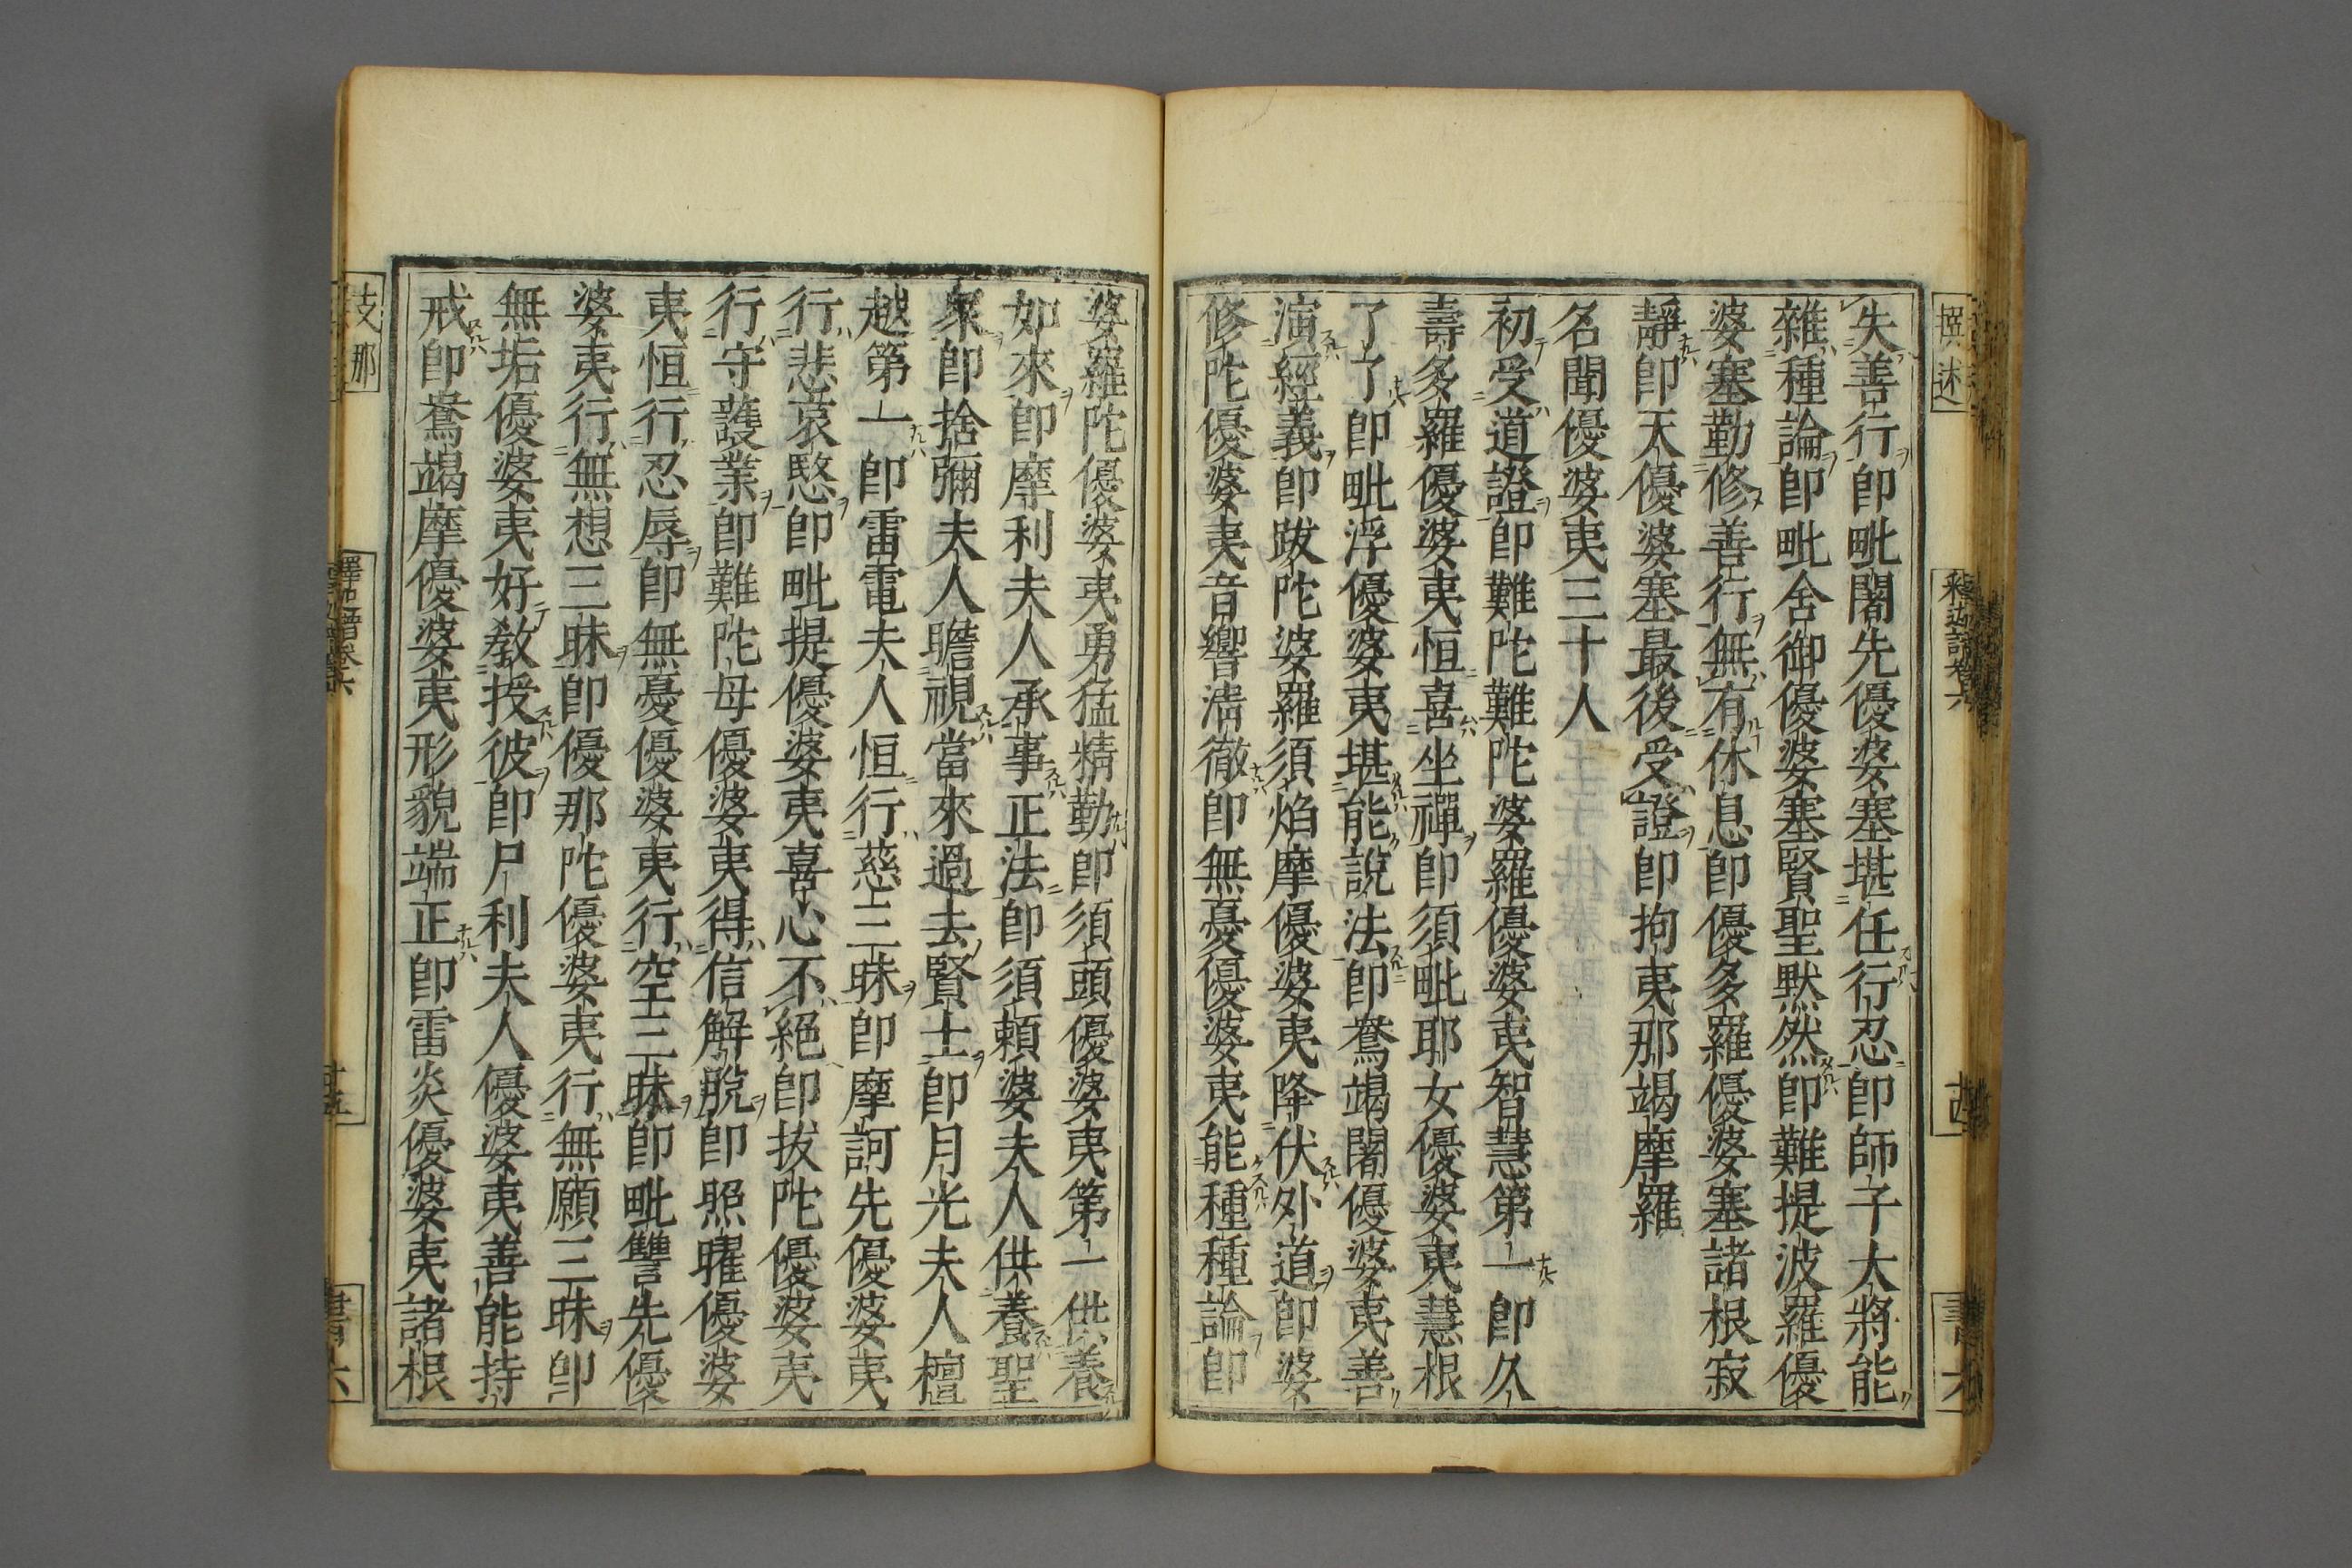 失善行即毗闍先優婆塞堪任行忍即師子大將能
雜種論即毗舍御優婆塞賢聖默然即難提波羅優
婆塞勤修善行無有休息即優多羅優婆塞諸根寂
靜即天優婆塞最後受證即拘夷那竭摩羅
名聞優婆夷三十人
初受道證即難陀難陀婆羅優婆夷智慧第一即久
壽多羅優婆夷恒喜坐禪即須毗耶女優婆夷慧根
了了即毗浮優婆夷堪能說法即鴦竭闍優婆夷善
演經義即跋陀婆羅須焰摩優婆夷降伏外道即婆
修陀優婆夷音響清徹即無憂優婆夷能種種論即
婆羅陀優婆夷勇猛精勤即須頭優婆夷第一供養
如來即摩利夫人承事正法即須賴婆夫人供養聖
衆即捨彌夫人瞻視當來過去賢士即月光夫人檀
越第一即雷電夫人恒行慈三昧即摩訶先優婆夷
行悲哀愍即毗提優婆夷喜心不絕即拔陀優婆夷
行守護業即難陀母優婆夷得信解脫即照曜優婆
夷恒行忍辱即無憂優婆夷行空三昧即毗讐先優
婆夷行無想三昧即優那陀優婆夷行無願三昧即
無垢優婆夷好教授彼即尸利夫人優婆夷善能持
戒即鴦竭摩優婆夷形貌端正即雷炎優婆夷諸根
撰述
釋迦譜卷六
十四
支那
釋迦譜卷六
十五